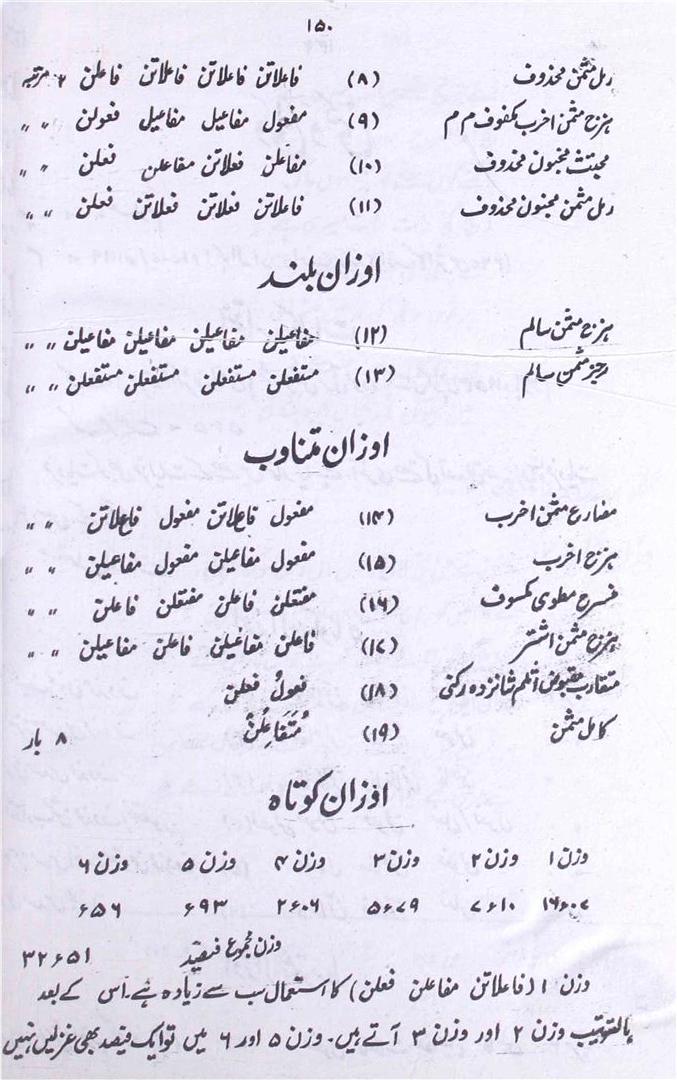 ۱۵۰
رمل مثمن محذوف (۸) فاعلاتن فاعلاتن فاعلاتن فاعلن ۲ مرتبہ
ہزج مثمن اخرب مکفوف م م (۹) مفعول مفاعیل مفاعیل فعولن 〃 〃
مجتث مخبون محذوف (۱۰) مفاعلن فعلاتن مفاعلن فعلن 〃 〃
رمل مثمن مخبنون محذوف (۱۱) فاعلاتن فعلاتن فعلاتن فعلن 〃 〃
اوزان بلند
ہزج مثمن سالم (۱۲) مفاعیلن مفاعیلن مفاعیلن مفاعیلن 〃 〃
رجز مثمن سالم (۱۳) مستفعلن مستفعلن مستفعلن مستفعلن 〃 〃
اوزان متناوب
مضارع مثمن اخرب (۱۴) مفعول فاعلاتن مفعول فاعلاتن 〃 〃
ہزج اخرب (۱۵) مفعول مفاعیلن مفعول مفاعیلن 〃 〃
منسرح مطوی مکسوف (۱۶) مفتعلن فاعلن مفتعلن فاعلن 〃 〃
ہزج مثمن اشتر (۱۷) فاعلن مفاعیلن فاعلن مفاعیلن 〃 〃
متقارب مقبوض اثلم شانزدہ رکنی (۱۸) فعولُ فعلن
کامل مثمن (۱۹) مُتَفَاعِلُنْ ۸ بار
اوزان کوتاہ
وزن ۱ وزن ۲ وزن ۳ وزن ۴ وزن ۵ وزن ۶
۱۶۶۰۷ ۷۶۱۰ ۵۶۷۹ ۲۶۰۶ ۶۹۳ ۶۵۶
وزن مجموع فیصد ۳۲۶۵۱
وزن ۱ (فاعلاتن مفاعلن فعلن) کا استعمال سب سے زیادہ ہے۔ اس کے بعد
بالترتیب وزن ۲ اور وزن ۳ آتے ہیں۔ وزن ۵ اور ۶ میں تو ایک فیصد بھی غزلیں نہیں